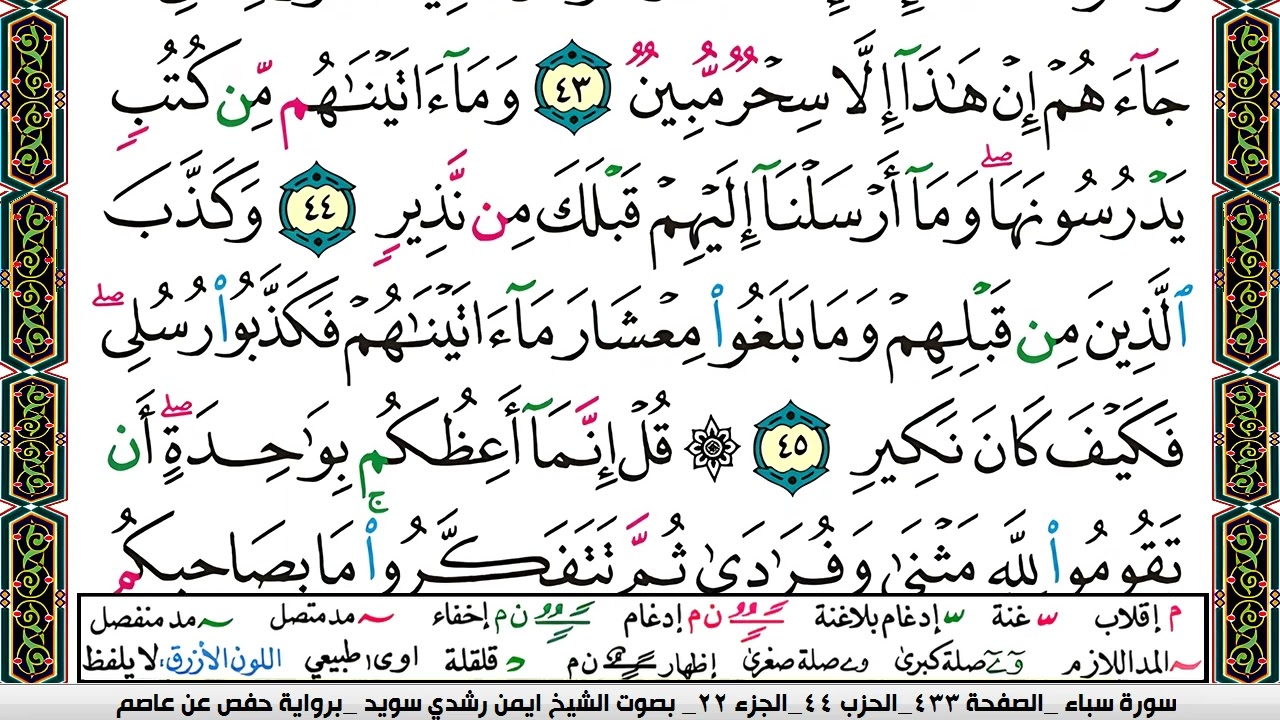 جَآءَهُمۡ إِنۡ هَٰذَآ إِلَّا سِحۡرٌ مُّبِينٌ ٤٣ وَمَآ ءَاتَيۡنَٰهُم مِّن كُتُبٍ
يَدۡرُسُونَهَاۖ وَمَآ أَرۡسَلۡنَآ إِلَيۡهِمۡ قَبۡلَكَ مِن نَّذِيرٍ ٤٤ وَكَذَّبَ
ٱلَّذِينَ مِن قَبۡلِهِمۡ وَمَا بَلَغُواْ مِعۡشَارَ مَآ ءَاتَيۡنَٰهُمۡ فَكَذَّبُواْ رُسُلِيۖ
فَكَيۡفَ كَانَ نَكِيرِ ٤٥ ۞ قُلۡ إِنَّمَآ أَعِظُكُم بِوَٰحِدَةٍۖ أَن
تَقُومُواْ لِلَّهِ مَثۡنَىٰ وَفُرَٰدَىٰ ثُمَّ تَتَفَكَّرُواْۚ مَا بِصَاحِبِكُم
م إقلاب س غنة س إدغام بلاغنة ن م إدغام ن م إخفاء مد متصل مد منفصل
المد اللازم و ے صلة كبرى و ے صلة صغرى إظهار ن م قلقلة اوى طبيعي اللون الأزرق، لا يلفظ
سورة سباء _الصفحة ٤٣٣_الحزب ٤٤_الجزء ٢٢_ بصوت الشيخ ايمن رشدي سويد _برواية حفص عن عاصم